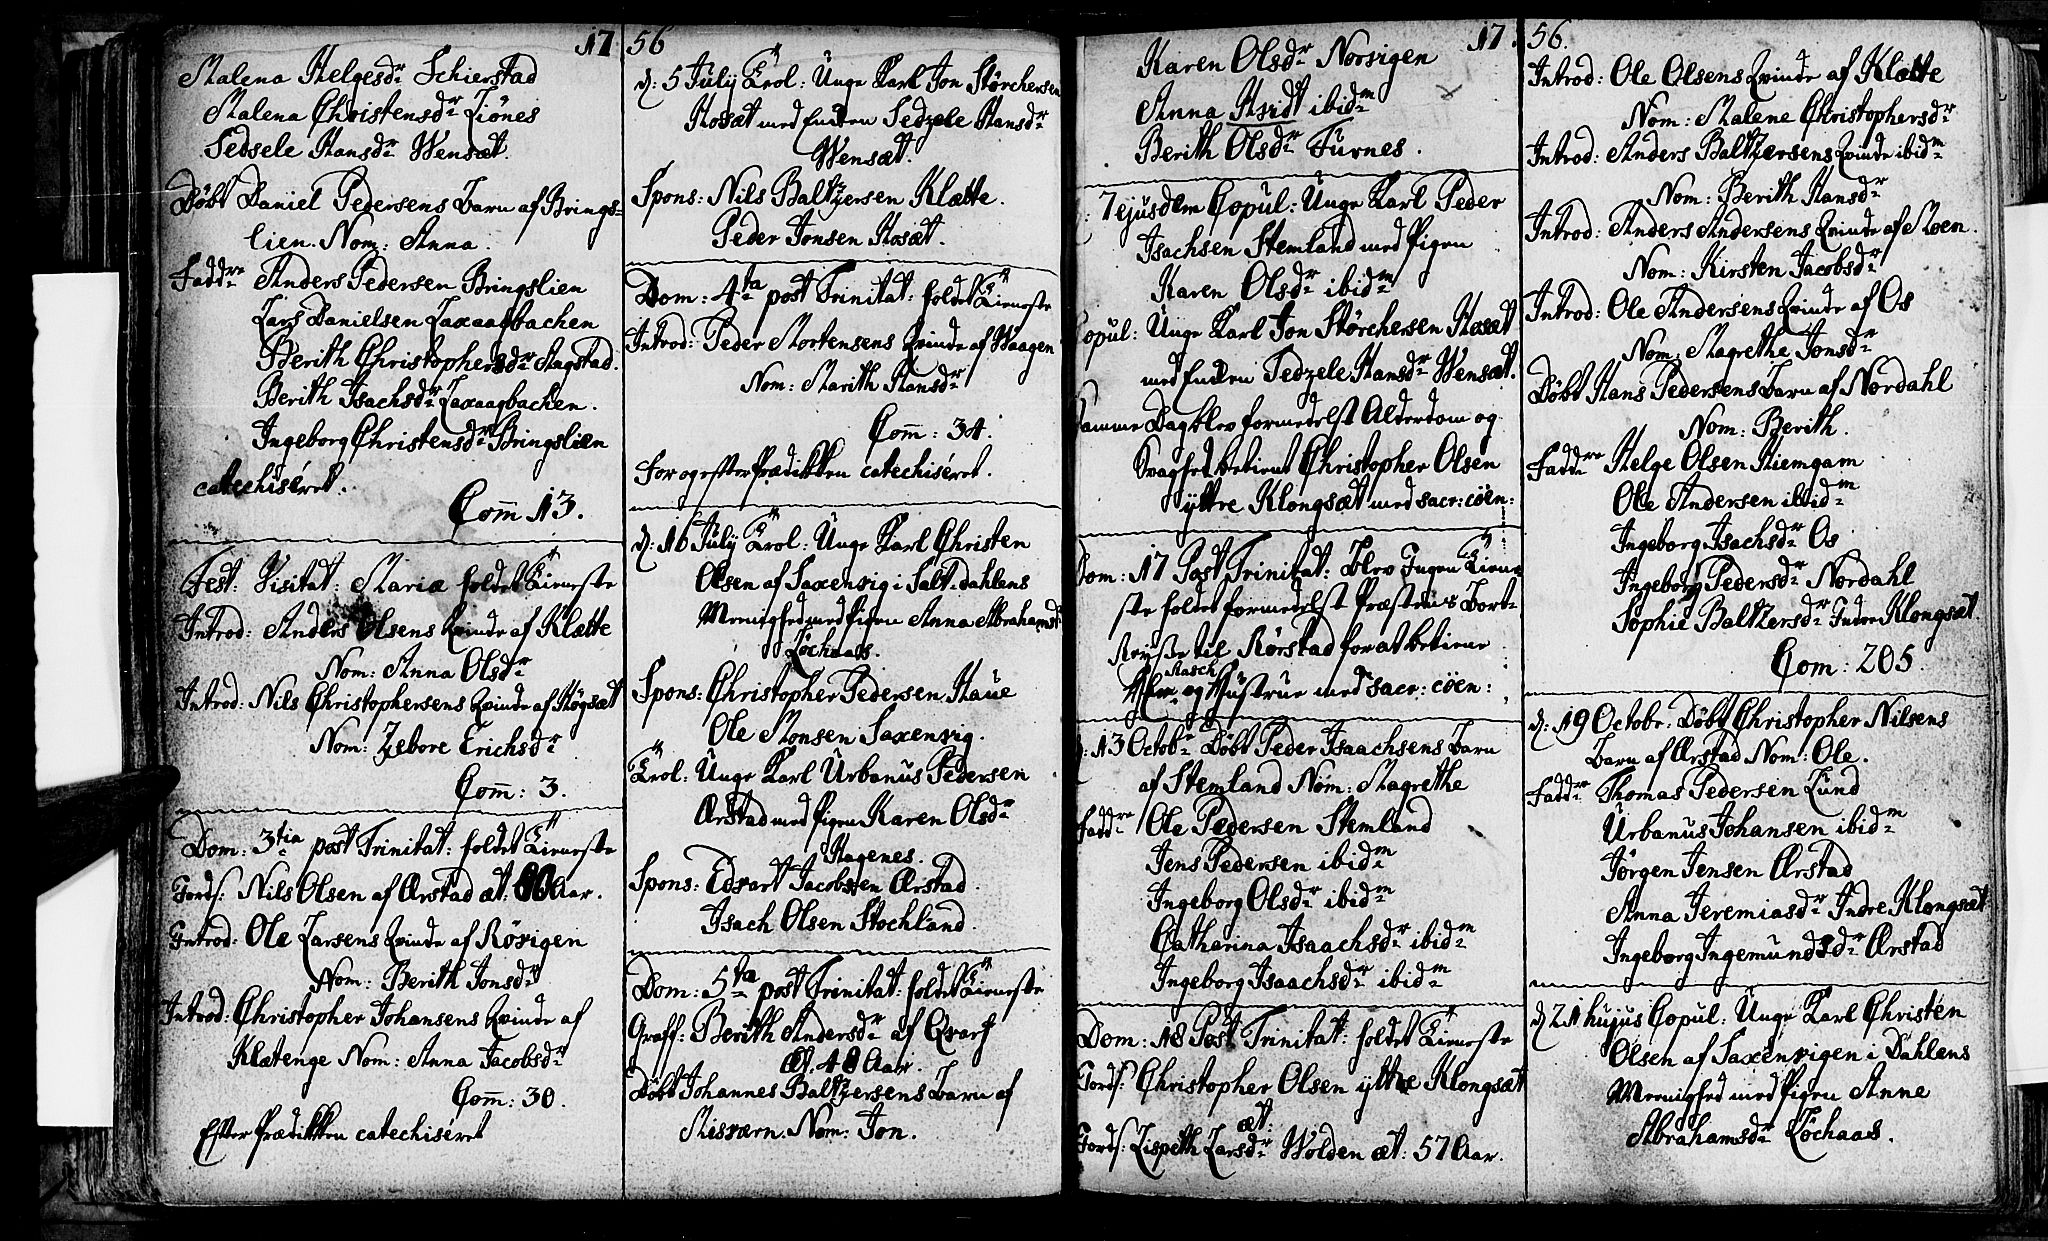 17 56
Malena Helgesdr Schierstad
Malena Christensdr Liönes
Sedsele Hansdr Wensæt.
Döbt Daniel Pedersens Barn af Brings-
lien. Nom: Anna.
Faddre Anders Pedersen Bringslien
Lars Danielsen Laxaagbachen
Berith Christophersdr Hagstad.
Berith Isachsdr Laxaagbachen.
Ingeborg Christensdr Bringslien
catechiseret.
Com̄ 13.
Fest: Visitat: Mariæ holdet Tieneste
Introd: Anders Olsens Qvinde af Klætte
Nom: Anna Olsdr
Introd: Nils Christophersens Qvinde af Høgsæt
Nom: Zebore Erichsdr
Com̄: 3.
Dom: 3tia post Trinitat: holdet Tieneste
Jords: Nils Olsen af Ørstad æt: Aar.
Introd: Ole Larsens Qvinde af Røvigen
Nom: Berith Jonsdr
Introd: Christopher Johansens Qvinde af
Klætenge Nom: Anna Jacobsdr
Com̄: 30.
Efter Prædikken catechiseret
d: 5 July Trol: Unge Karl Jon Störchersen
Hosæt med Enken Sedzele Hansdr
Wensæt.
Spons: Nils Baltzersen Klætte.
Peder Jonsen Hosæt.
Dom: 4ta post Trinitat: holdet Tieneste
Introd: Peder Mortensens Qvinde af Waagen
Nom: Marith Hansdr
Com̄: 34.
For og efter Prædikken catechiseret.
d: 16 July Trol: Unge Karl Christen
Olsen af Saxenvig i Salt-dahlens
Menighed med Pigen Anna Abrahamsdr
Löchaas.
Spons: Christopher Pedersen Haue
Ole Monsen Saxenvig.
Trol: Unge Karl Urbanus Pedersen
Ørstad med Pigen Karen Olsdr
Hagenes.
Spons: Edvart Jacobsen Ørstad.
Isach Olsen Stochland.
Dom: 5ta post Trinitat: holdet Tieneste
Graff: Berith Andersdr af Qvarf
Æt. 40 Aar.
Döbt Johannes Baltzersens Barn af
Misværn. Nom: Jon.
17. 56.
Karen Olsdr Norvigen
Anna Hvidt ibidm
Berith Olsdr Furnes.
: 7 ejusdem Copul: Unge Karl Peder
Isachsen Stemland med Pigen
Karen Olsdr ibidm
Copul: Unge Karl Jon Störchersen Hosæt
med Enken Sedzele Hansdr Wensæt.
Samme Dag blev formedelst Alderdom og
Svaghed betient Christopher Olsen
yttre Klongsæt med sacr: cöen:
Dom: 17 Post Trinitat: blev Ingen Tiene-
ste holdet formedelst Præstens Bort-
Reyse til Rørstad for at betiene
Hasch
Hr og Hustrue med sacr: cöen:
d: 13 Octobr Döbt Peder Isaachsens Barn
af Stemland Nom: Magrethe
Faddre Ole Pedersen Stemland
Jens Pedersen ibidm
Ingeborg Olsdr ibidm
Catharina Isaachsdr ibidm
Ingeborg Isaachsdr ibidm
Dom: 18 Post Trinitat: holdet Tieneste
Jords: Christopher Olsen yttre Klongsæt
æt:
Jords: Lispeth Larsdr Wolden æt: 57 Aar.
Introd: Ole Olsens Qvinde af Klætte
Nom: Malene Christophersdr
Introd: Anders Baltzersens Qvinde ibidm
Nom: Berith Hansdr
Introd: Anders Andersens Qvinde af Moen.
Nom: Kirsten Jacobsdr
Introd: Ole Andersens Qvinde af Os
Nom: Magrethe Jonsdr
Döbt Hans Pedersens Barn af Nordahl
Nom: Berith.
Faddre Helge Olsen Hiemgam
Ole Andersen ibidm
Ingeborg Isachsdr Os
Ingeborg Pedersdr Nordahl
Sophie Baltzersdr Indre Klongsæt.
Com: 205.
d: 19 Octobr: Döbt Christopher Nilsens
Barn af Ørstad Nom: Ole.
Faddr Thomas Pedersen Lund
Urbanus Johansen ibidm
Jörgen Jensen Ørstad
Anna Jeremiasdr Indre Klongsæt
Ingeborg Ingemundsdr Ørstad
d 21 hujus Copul: Unge Karl Christen
Olsen af Saxenvigen i Dahlens
Menighed med Pigen Anne
Abrahamsdr Löchaas.